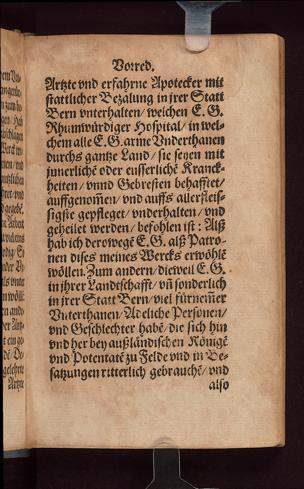 Vorred.
Artzte vnd erfahrne Apotecker mit
stattlicher Bezalung in jrer Statt
Bern vnterhalten/ welchen E. G.
Rhumwürdiger Hospital/ in wel-
chem alle E. G. arme Vnderthanen
durchs gantze Land/ sie seyen mit
jnnerlichē oder eusserlichē Kranck-
heiten/ vnnd Gebresten behafftet/
auffgenom̄en/ vnd auffs allerfleis-
sigste gepfleget/ vnderhalten/ vnd
geheilet werden/ befohlen ist: Alß
hab ich derowegē E. G. alß Patro-
nen dises meines Wercks erwöhlē
wöllen. Zum andern/ dieweil E. G.
in jhrer Landschafft/ vn̄ sonderlich
in jrer Statt Bern/ viel fürnem̄er
Vnterthanen/ Adeliche Personen/
vnd Geschlechter habē/ die sich hin
vnd her bey außländischen Königē
vnd Potentatē zu Felde vnd in Be-
satzungen ritterlich gebrauchē/ vnd
also